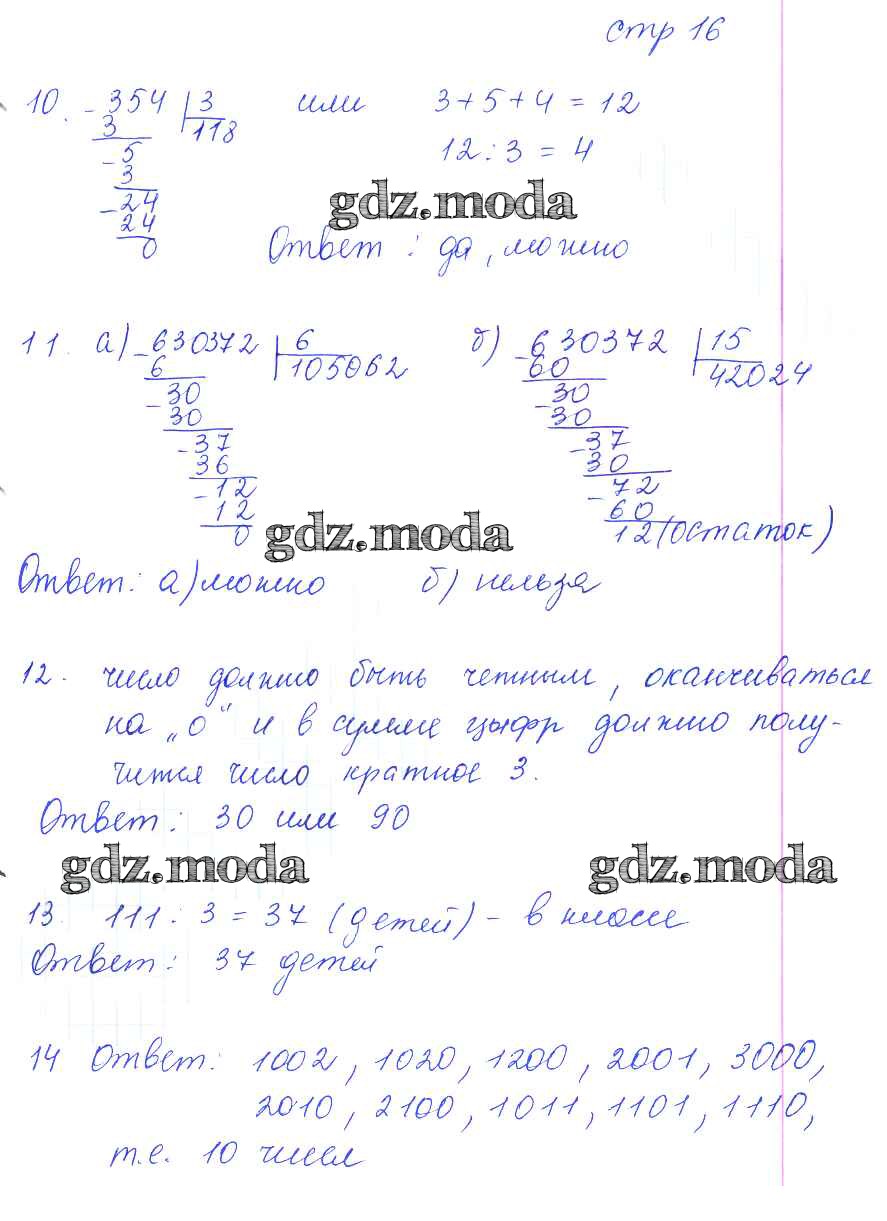 стр 16
10. -354 | 3 или 3+5+4 = 12
3 118 12 : 3 = 4
-5
3
-24
24
0
gdz.moda
Ответ : да, можно
11. а) -630372 | 6 б) -630372 | 15
6 105062 60 42024
-30 -30
30 30
-37 -37
36 30
-12 -72
12 60
0 12 (остаток)
gdz.moda
Ответ: а) можно б) нельзя
12. число должно быть четным, оканчиваться
на „0“ и в сумме цыфр должно полу-
чится число кратное 3.
Ответ: 30 или 90
gdz.moda gdz.moda
13. 111 : 3 = 37 (детей) - в классе
Ответ: 37 детей
14 Ответ: 1002, 1020, 1200, 2001, 3000,
2010, 2100, 1011, 1101, 1110,
т.е. 10 чисел